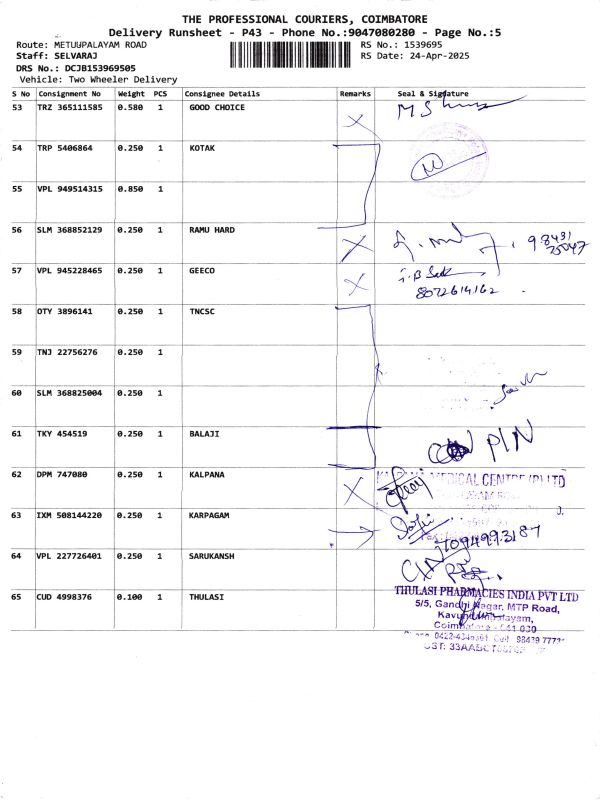 THE PROFESSIONAL COURIERS, COIMBATORE
Delivery Runsheet - P43 - Phone No.:9047080280 - Page No.:5
Route: METUUPALAYAM ROAD RS No.: 1539695
Staff: SELVARAJ RS Date: 24-Apr-2025
DRS No.: DCJB153969505
Vehicle: Two Wheeler Delivery
S No Consignment No Weight PCS Consignee Details Remarks Seal & Signature
53 TRZ 365111585 0.580 1 GOOD CHOICE
54 TRP 5406864 0.250 1 KOTAK
55 VPL 949514315 0.850 1
56 SLM 368852129 0.250 1 RAMU HARD
57 VPL 945228465 0.250 1 GEECO
8072614162
58 OTY 3896141 0.250 1 TNCSC
59 TNJ 22756276 0.250 1
60 SLM 368825004 0.250 1
61 TKY 454519 0.250 1 BALAJI
62 DPM 747080 0.250 1 KALPANA
MEDICAL CENTRE (P) LTD
63 IXM 508144220 0.250 1 KARPAGAM
64 VPL 227726401 0.250 1 SARUKANSH
65 CUD 4998376 0.100 1 THULASI
THULASI PHARMACIES INDIA PVT LTD
5/5, Gandhi Nagar, MTP Road,